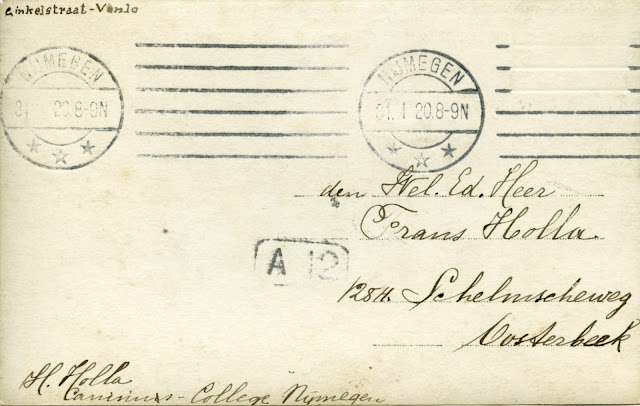 Ginkelstraat-Venlo
NIJMEGEN
31. 1 20.8-9N
NIJMEGEN
31. 1 20.8-9N
den Wel. Ed. Heer
Frans Holla.
A 12
128H. Schelmscheweg
Oosterbeek
H. Holla
Canisius-College Nymegen